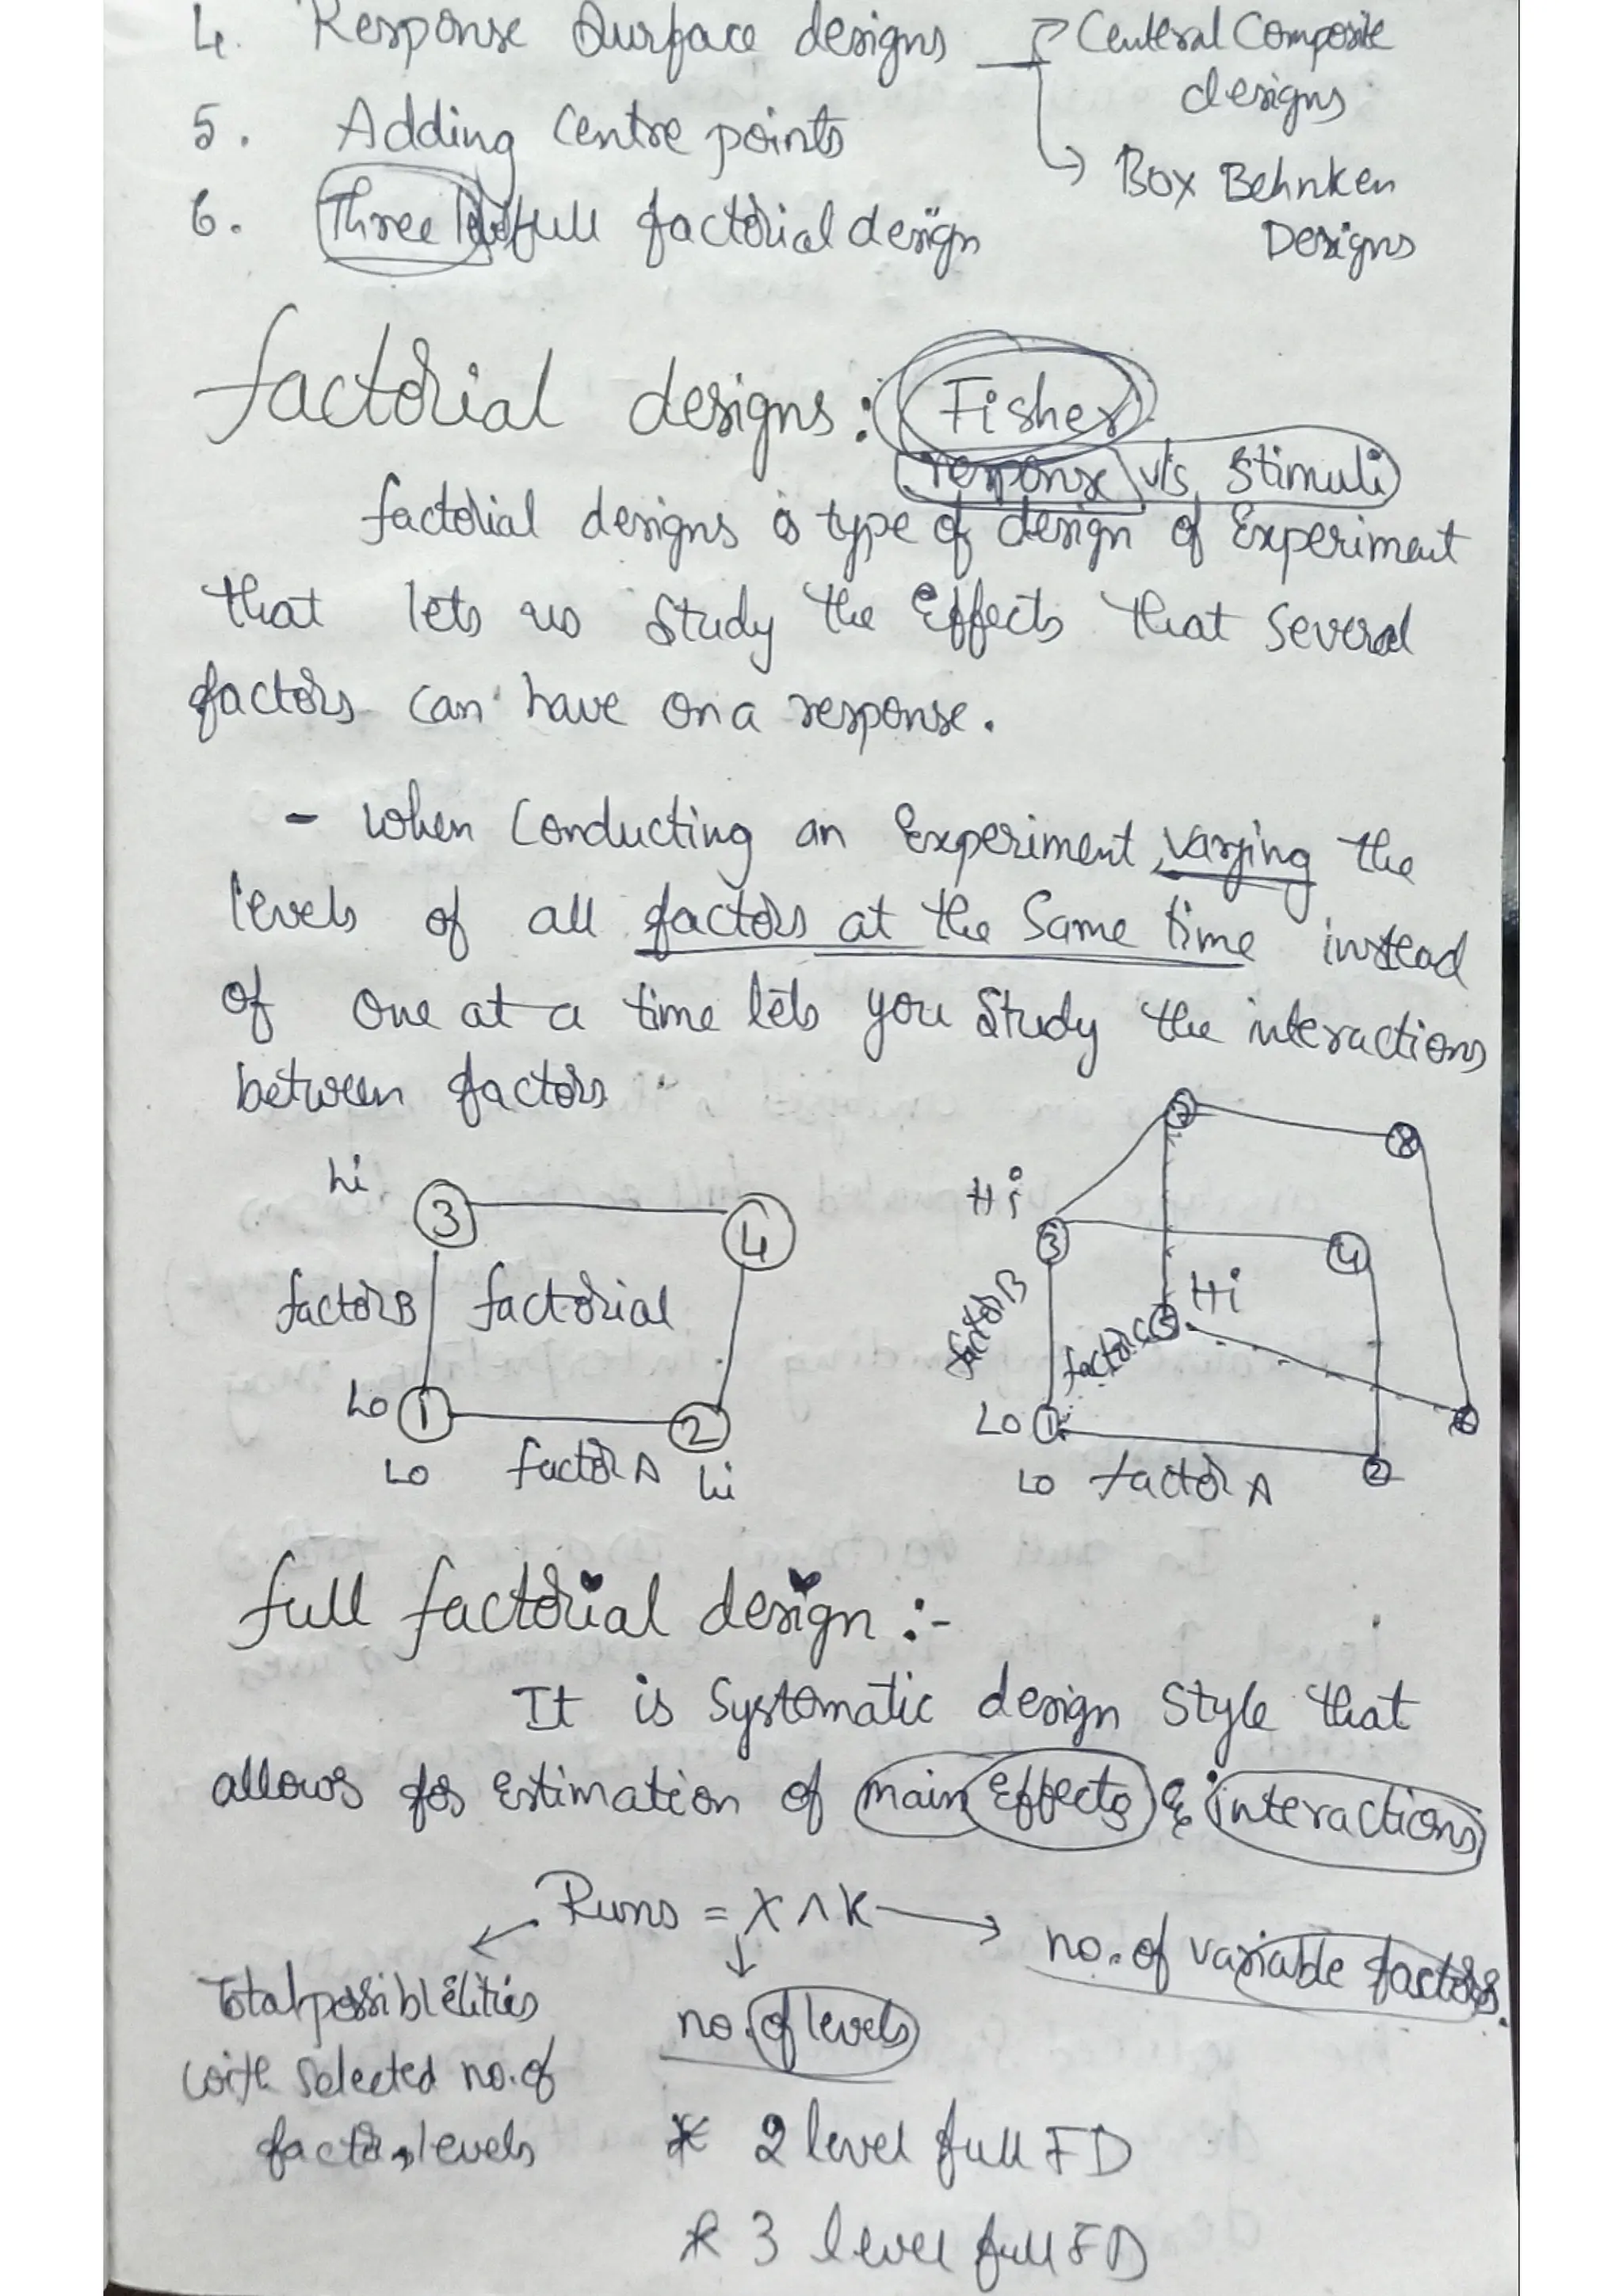 4. Response Surface designs
Central Composite
designs
5. Adding Centre points
Box Behnken
Designs
6. Three level full factorial design
factorial designs: Fisher
response v/s stimuli
factorial designs is type of design of Experiment
that lets us study the Effects that several
factors can have on a response.
- when Conducting an Experiment, varying the
levels of all factors at the Same time instead
of one at a time lets you Study the interactions
between factors
hi
3
4
factor B
factorial
Lo 1
2
Lo factor A hi
7
8
Hi
3
4
factor B
factor C 5
Hi
Lo 1
6
2
Lo factor A
full factorial design :-
It is Systematic design Style that
allows for Estimation of main Effects & interactions
Runs = X ^ K
no. of variable factors.
Total possiblelities
with selected no. of
factor, levels
no. of levels
* 2 level full FD
* 3 level full FD